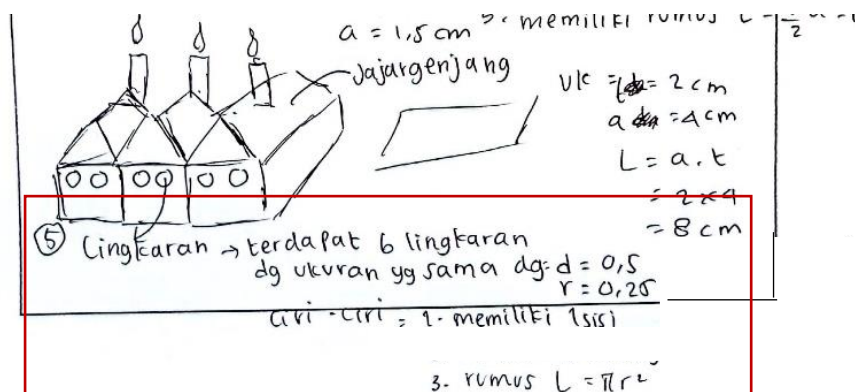 a = 1,5 cm
3. memiliki rumus L =
2
Jajargenjang
UK = = 2 cm
a = 4 cm
L = a. t
= 2 x 4
= 8 cm
⑤ Lingkaran → terdapat 6 lingkaran
dg ukuran yg sama dg: d = 0,5
r = 0,25
Ciri - ciri = 1. memiliki 1 sisi
3. rumus L = πr²